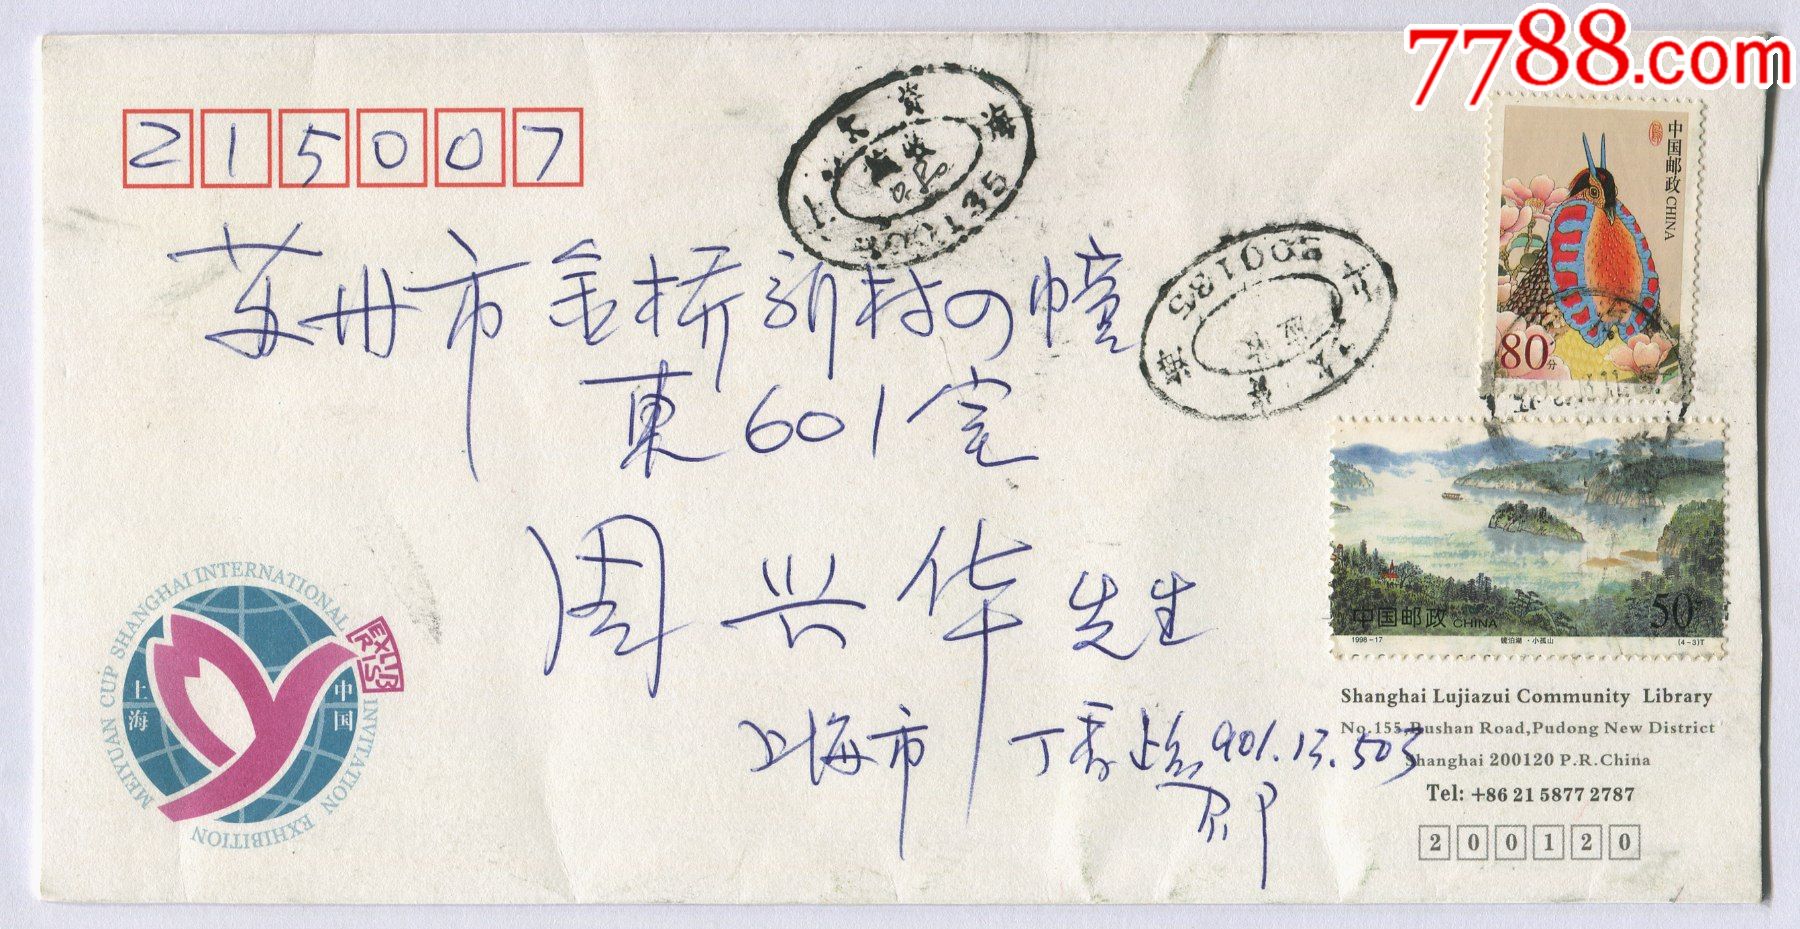 7788.com
215007
中国邮政 CHINA
80分
苏州市金桥新村四幢
東601室
周兴华先生
中国邮政 CHINA
50
1998-17
镜泊湖·小孤山
(4-3)T
上海市丁香路901.13.503
Shanghai Lujiazui Community Library
No.155,Bushan Road,Pudong New District
Shanghai 200120 P.R.China
Tel: +86 21 5877 2787
200120
MEIYUAN CUP SHANGHAI INTERNATIONAL EXLIBRIS INVITATION EXHIBITION
上海
中国
200135